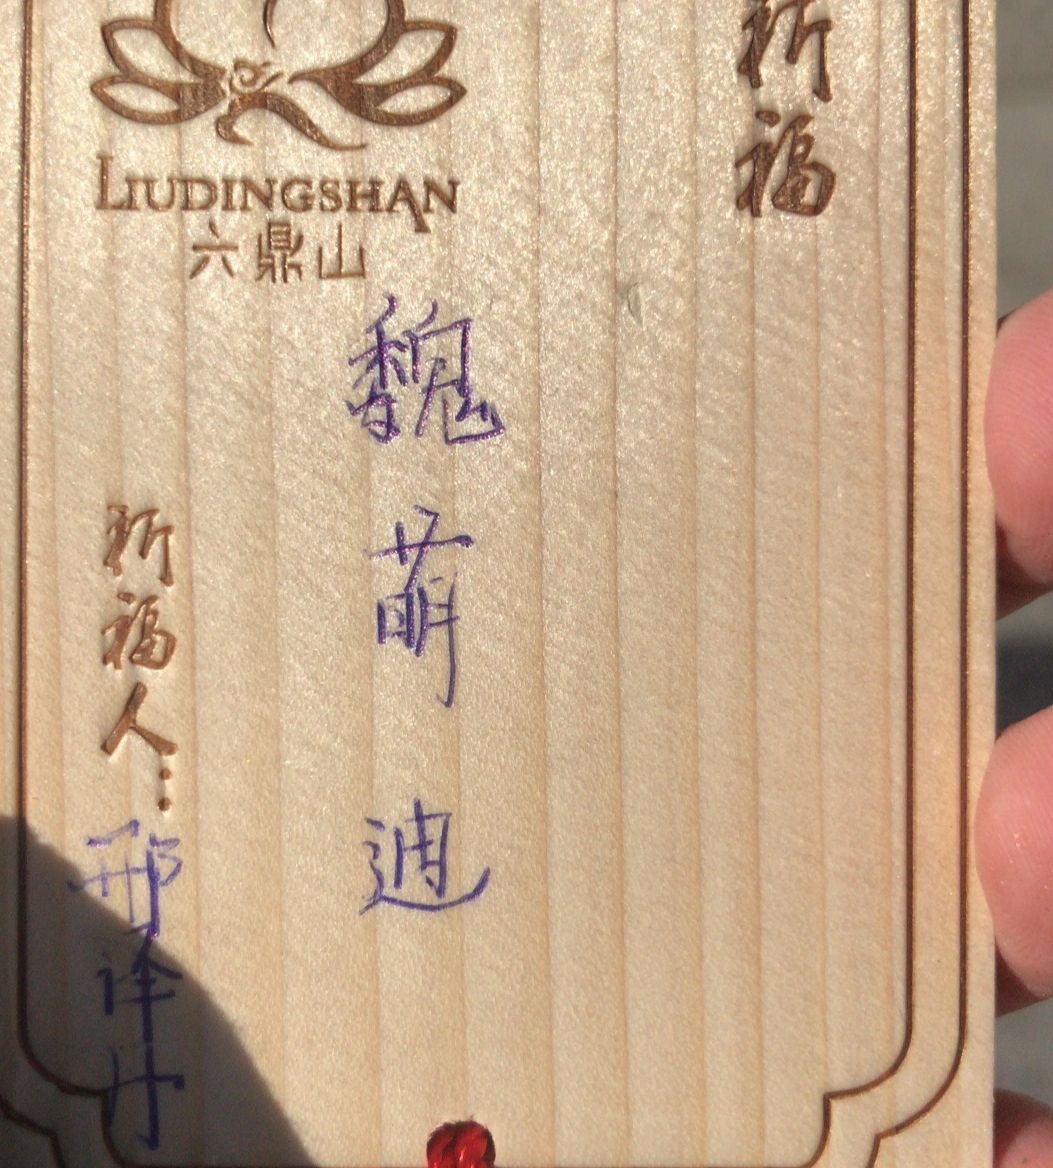 祈福
LIUDINGSHAN
六鼎山
魏萌迪
祈福人：
邢泽丹